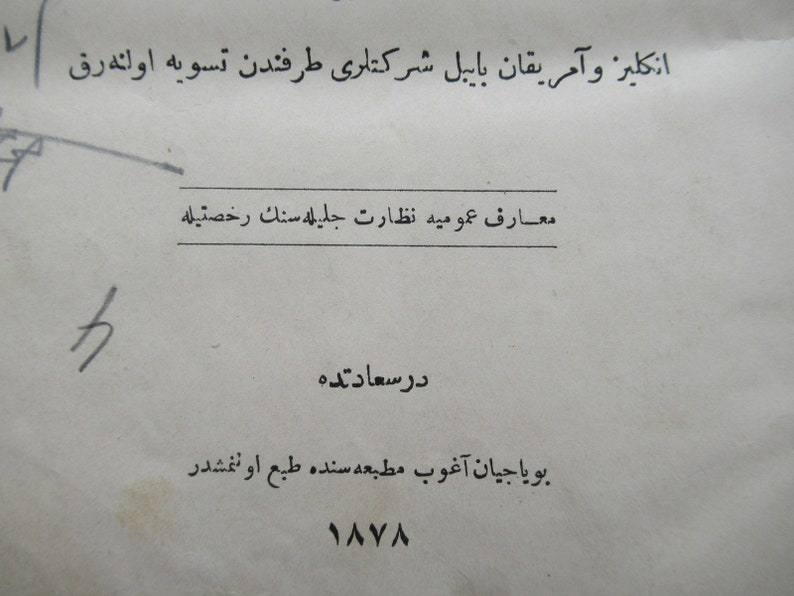 انكليز و آمريقان بايبل شركتلرى طرفندن تسويه اولنه‌رق
معــارف عموميه نظارت جليله‌سنك رخصتيله
درسعادتده
بوياجيان آغوب مطبعه‌سنده طبع اولنمشدر
١٨٧٨